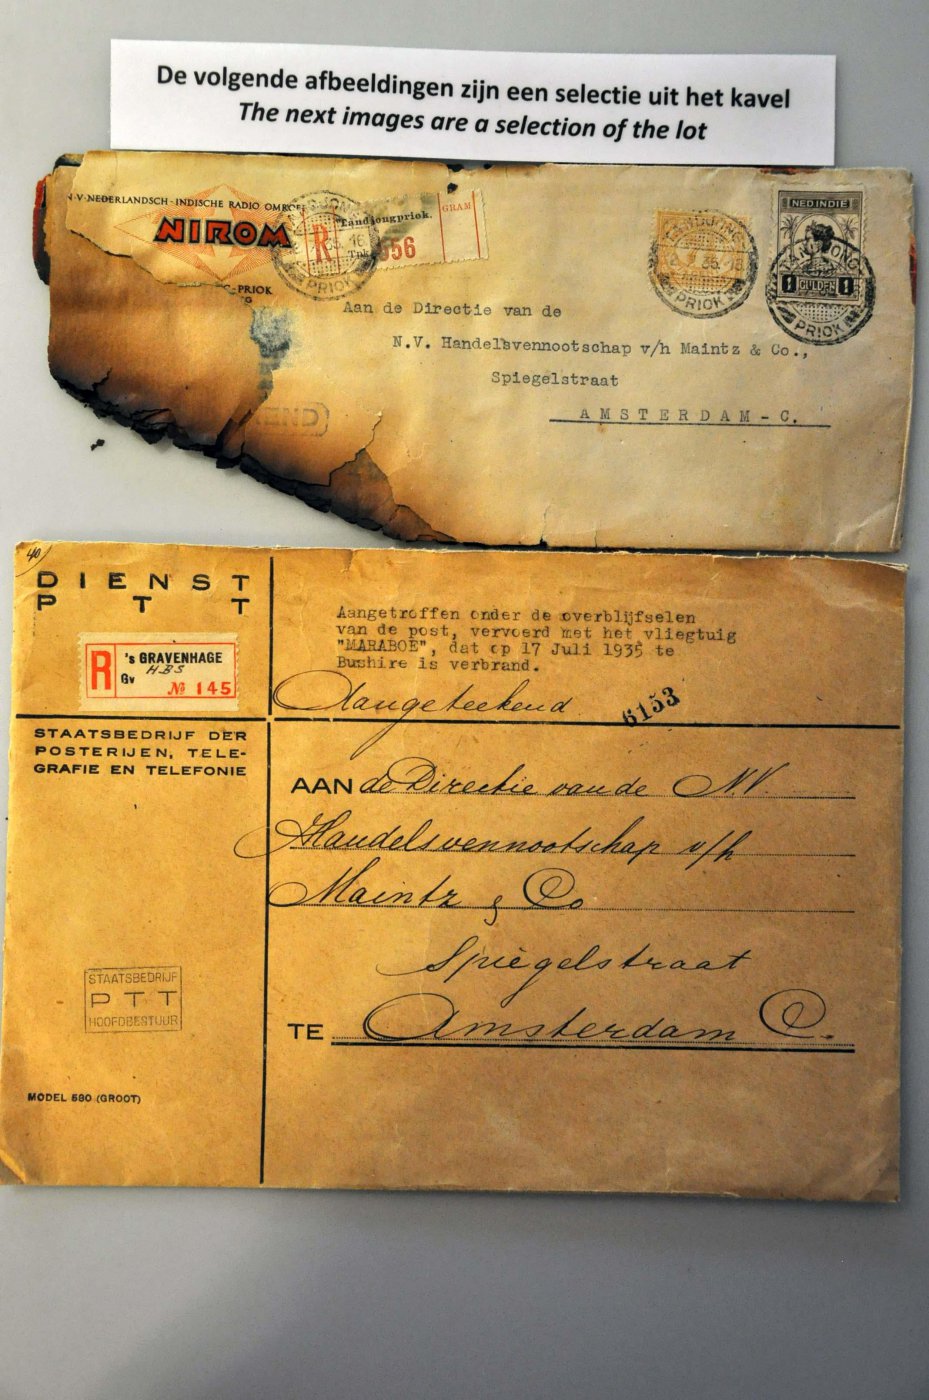 De volgende afbeeldingen zijn een selectie uit het kavel
The next images are a selection of the lot
N.V. NEDERLANDSCH-INDISCHE RADIO OMROE
NIROM
R Tandjongpriok.
656
GRAM
NED INDIE
1 GULDEN 1
TANDJONG
PRIOK
TANDJONG
PRIOK
-PRIOK
Aan de Directie van de
N.V. Handelsvennootschap v/h Maintz & Co.,
Spiegelstraat
AMSTERDAM-C.
END
40
DIENST
PTT
R 's GRAVENHAGE
HBS
Gv
№ 145
Aangetroffen onder de overblijfselen
van de post, vervoerd met het vliegtuig
"MARABOE", dat op 17 Juli 1935 te
Bushire is verbrand.
Aangeteekend
6153
STAATSBEDRIJF DER
POSTERIJEN, TELE-
GRAFIE EN TELEFONIE
AAN de Directie van de NV.
Handelsvennootschap v/h
Maintz & Co
Spiegelstraat
TE Amsterdam C.
STAATSBEDRIJF
PTT
HOOFDBESTUUR
MODEL 580 (GROOT)